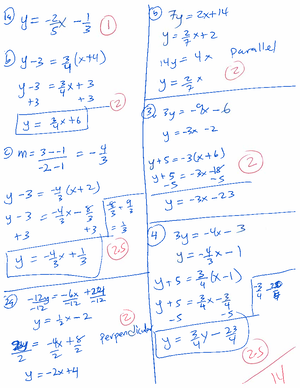 1a y = -2/5 x - 1/3
1
b y - 3 = 3/4 (x+4)
y - 3 = 3/4 x + 3
+3 +3
2
y = 3/4 x + 6
c m = 3--1 / -2-1 = -4/3
y - 3 = -4/3 (x+2)
y - 3 = -4/3 x - 8/3
-8/3 + 9/3
= 1/3
+3 +3
y = -4/3 x + 1/3
2.5
-12y/-12 = -6x/-12 + 24/-12
y = 1/2 x - 2
2
perpendicular
2y/2 = -4x/2 + 8/2
y = -2x + 4
b 7y = 2x + 14
y = 2/7 x + 2
14y = 4x
parallel
y = 2/7 x
2
3 3y = -9x - 6
y = -3x - 2
y + 5 = -3(x+6)
y + 5 = -3x - 18
-5 -5
2
y = -3x - 23
4 3y = -4x - 3
y = -4/3 x - 1
y + 5 = 3/4 (x - 1)
y + 5 = 3/4 x - 3/4
-5 -5
y = 3/4 y - 23/4
2.5
14